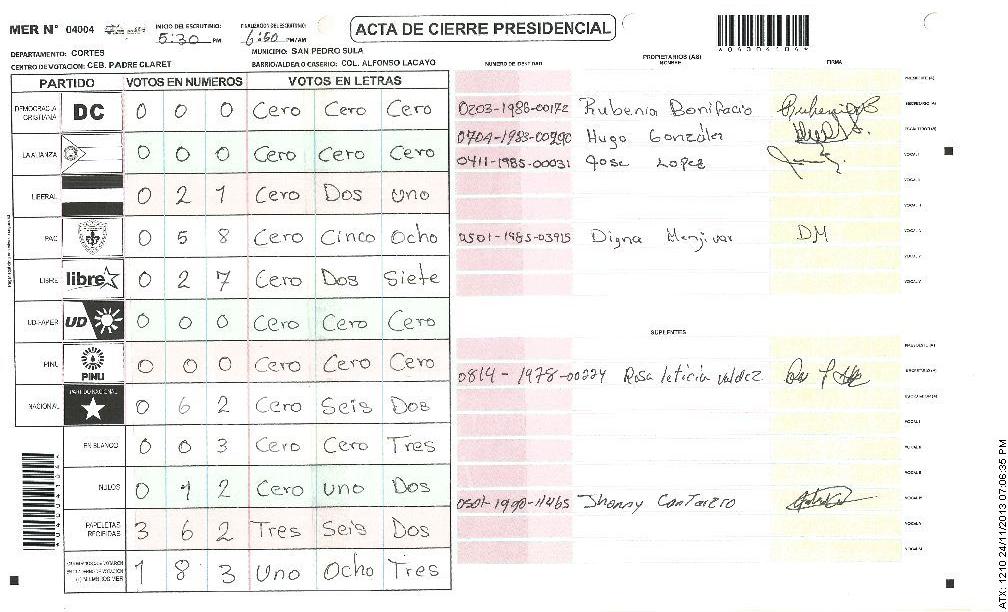 MER Nº 04004 INICIO DEL ESCRUTINIO: 5:30 PM FINALIZACION DEL ESCRUTINIO: 6:50 PM/AM ACTA DE CIERRE PRESIDENCIAL
DEPARTAMENTO: CORTES MUNICIPIO: SAN PEDRO SULA
CENTRO DE VOTACION: CEB. PADRE CLARET BARRIO/ALDEA O CASERIO: COL. ALFONSO LACAYO
PARTIDO VOTOS EN NUMEROS VOTOS EN LETRAS
DEMOCRACIA CRISTIANA DC 0 0 0 Cero Cero Cero
LA ALIANZA 0 0 0 Cero Cero Cero
LIBERAL 0 2 1 Cero Dos uno
PAC 0 5 8 Cero Cinco Ocho
LIBRE libre 0 2 7 Cero Dos Siete
UD-FAPER UD 0 0 0 Cero Cero Cero
PINU PINU 0 0 0 Cero Cero Cero
NACIONAL PARTIDO NACIONAL 0 6 2 Cero Seis Dos
EN BLANCO 0 0 3 Cero Cero Tres
NULOS 0 1 2 Cero uno Dos
PAPELETAS RECIBIDAS 3 6 2 Tres Seis Dos
1 8 3 Uno Ocho Tres
PROPIETARIOS (AS)
NUMERO DE IDENTIDAD NOMBRE FIRMA
PRESIDENTE (A)
0203-1986-00172 Rubenia Bonifacio SECRETARIO (A)
0704-1983-00290 Hugo González ESCRUTADOR (A)
0411-1985-00031 Jose Lopez VOCAL I
0501-1985-03915 Digna Menjivar DM
SUPLENTES
PRESIDENTE (A)
0814-1978-00224 Rosa leticia valdez SECRETARIO (A)
ESCRUTADOR (A)
VOCAL I
VOCAL II
VOCAL III
0501-1990-11465 Jhonny Cantarero VOCAL IV
VOCAL V
VOCAL VI
ATX: 1210 24/11/2013 07:06:35 PM